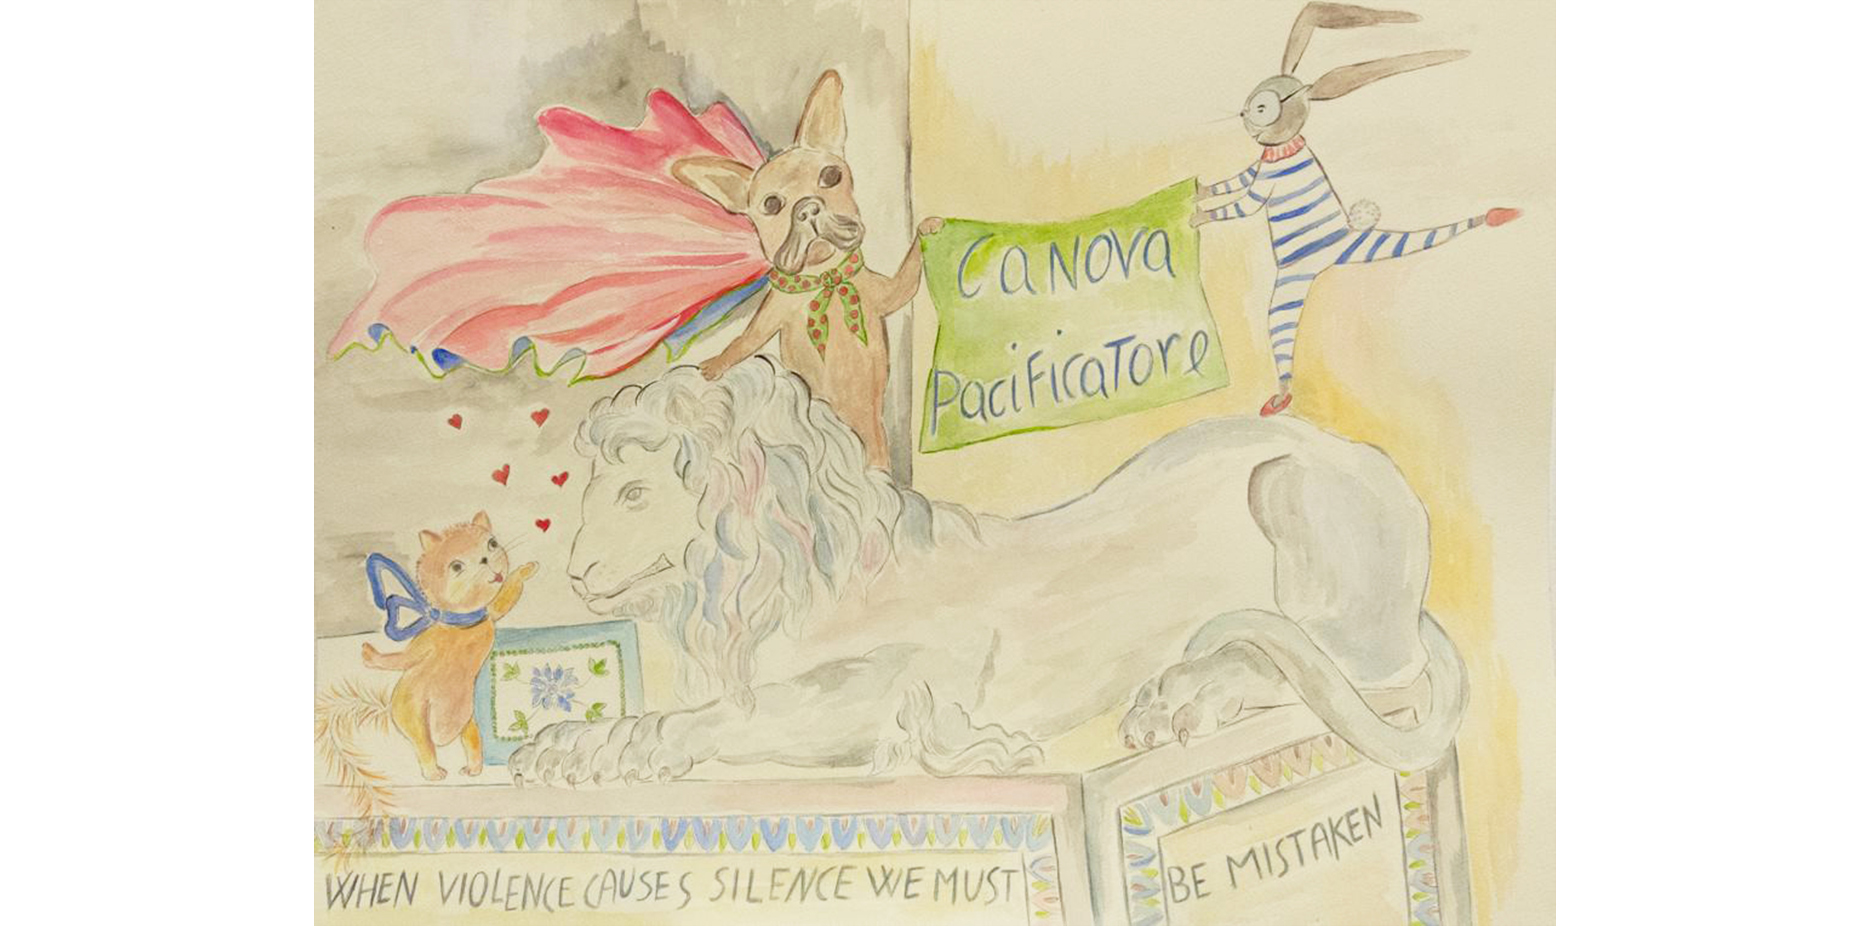 CaNova
PaciFicaTore
WHEN VIOLENCE CAUSES SILENCE WE MUST
BE MISTAKEN